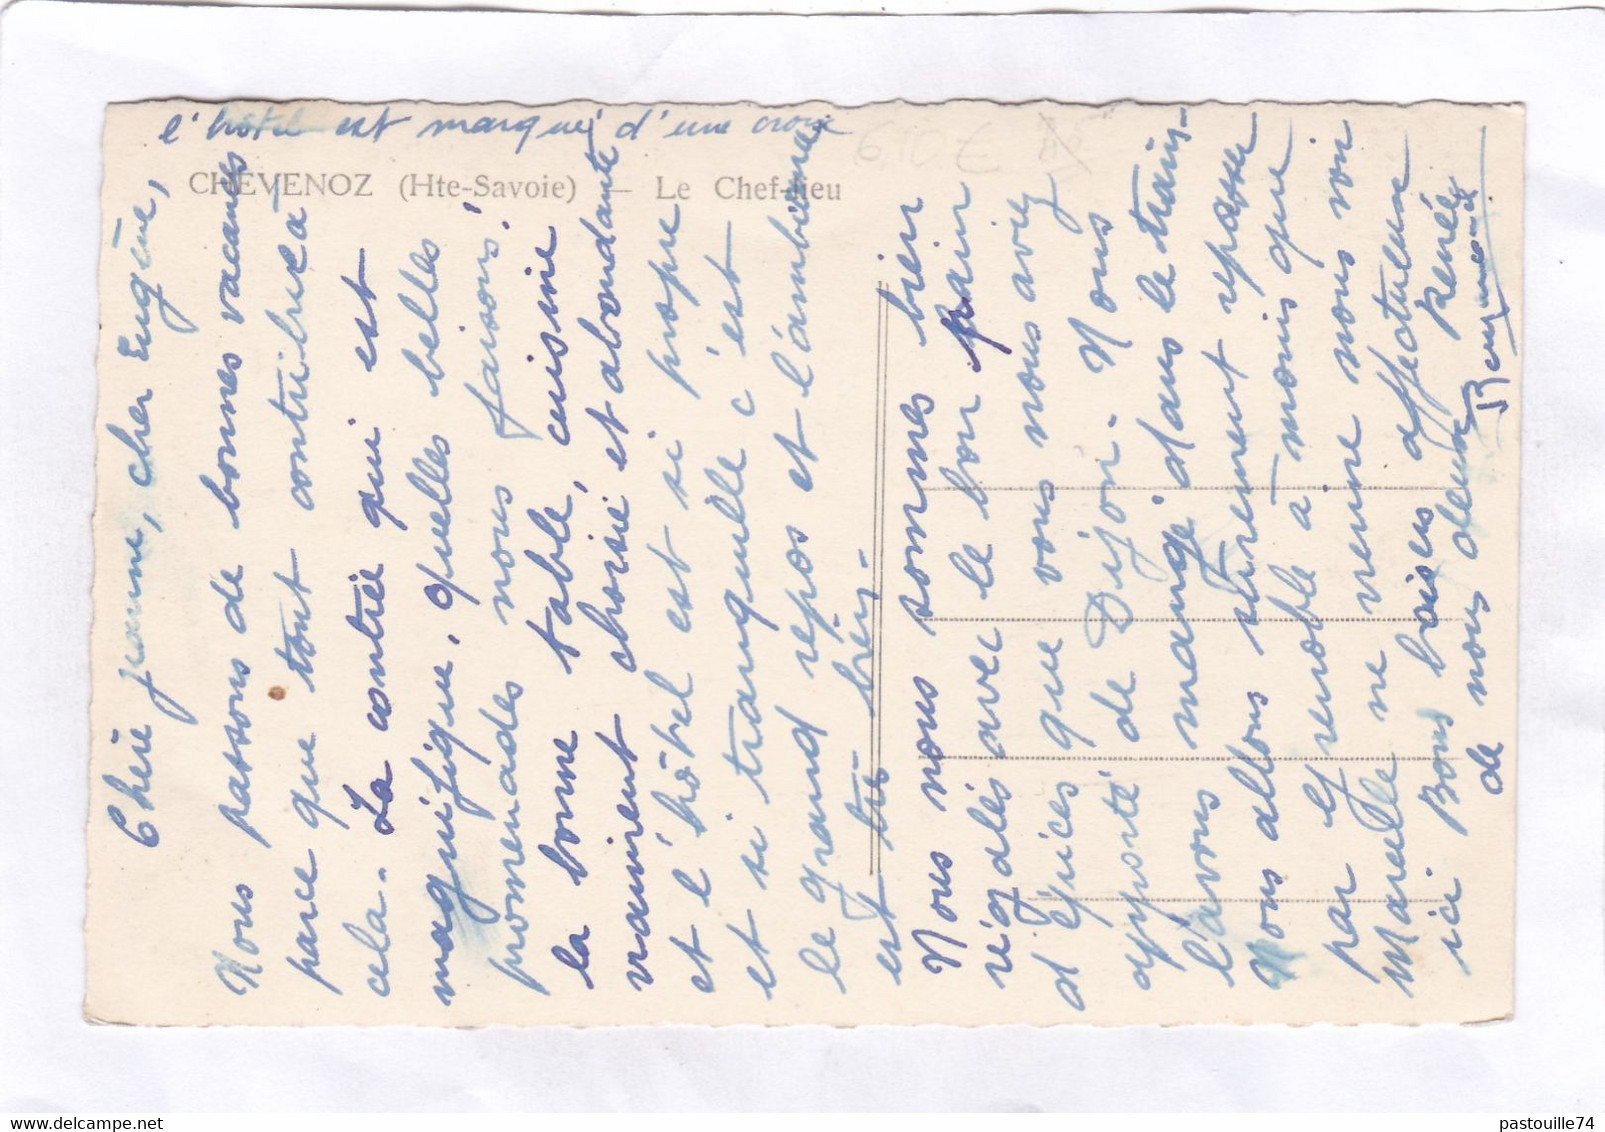 l'hôtel est marqué d'une croix
CHEVENOZ (Hte-Savoie) — Le Chef-lieu
6,10 €
Chère jeanne, cher Eugène,
Nous passons de bonnes vacances
parce que tout contribue à
cela. La contrée qui est
magnifique, quelles belles
promenades nous faisons!
la bonne table, cuisine
vraiment choisie et abondante
et l'hôtel est si propre
et si tranquille c'est
le grand repos et l'ambiance
est très bien.
Nous nous sommes bien
régalés avec le bon pain
d'épices que vous nous avez
apporté de Dijon. Nous
l'avons mangé dans le train.
Nous allons sûrement repasser
par Grenoble à moins que
Marcelle ne vienne nous voir
ici Bons baisers affectueux
de nous deux Renée
pastouille74